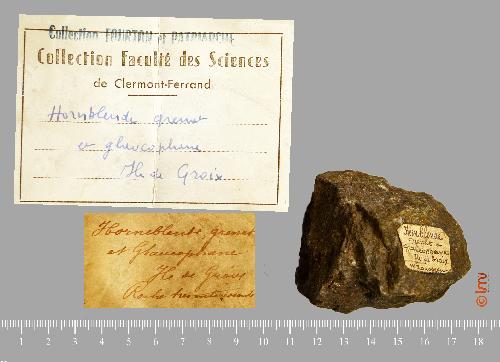 Collection FOURTOU et PATRIARCHE
Collection Faculté des Sciences
de Clermont-Ferrand
Hornblende grenat
et glaucophane
Ile de Groix
Hornblende grenat
et Glaucophane
Ile de Groix
Roche
Hornblende
Ile de Groix
© lmv
0 1 2 3 4 5 6 7 8 9 10 11 12 13 14 15 16 17 18